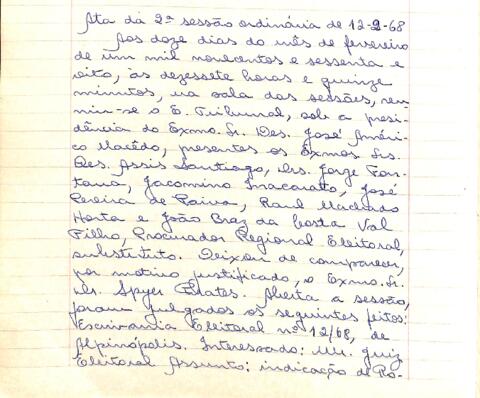 Ata da 2ª sessão ordinária de 12-2-68
Aos doze dias do mês de fevereiro
de um mil novecentos e sessenta e
oito, às dezessete horas e quinze
minutos, na sala das sessões, reu
niu-se o E. Tribunal, sob a presi-
dência do Exmo. Sr. Des. José Améri-
co Macêdo, presentes os Exmos. Srs.
Des. Assis Santiago, Drs. Jorge Fon-
tana, Jacomino Inacarato, José
Pereira de Paiva, Raul Machado
Horta e João Braz da Costa Val
Filho, Procurador Regional Eleitoral,
substituto. Deixou de comparecer,
por motivo justificado, o Exmo. Sr.
Dr. Spyer Prates. Aberta a sessão,
foram julgados os seguintes feitos:
Escrivania Eleitoral nº 12/68, de
Alpinópolis. Interessado: MM. Juiz
Eleitoral Assunto: indicação de Ro-